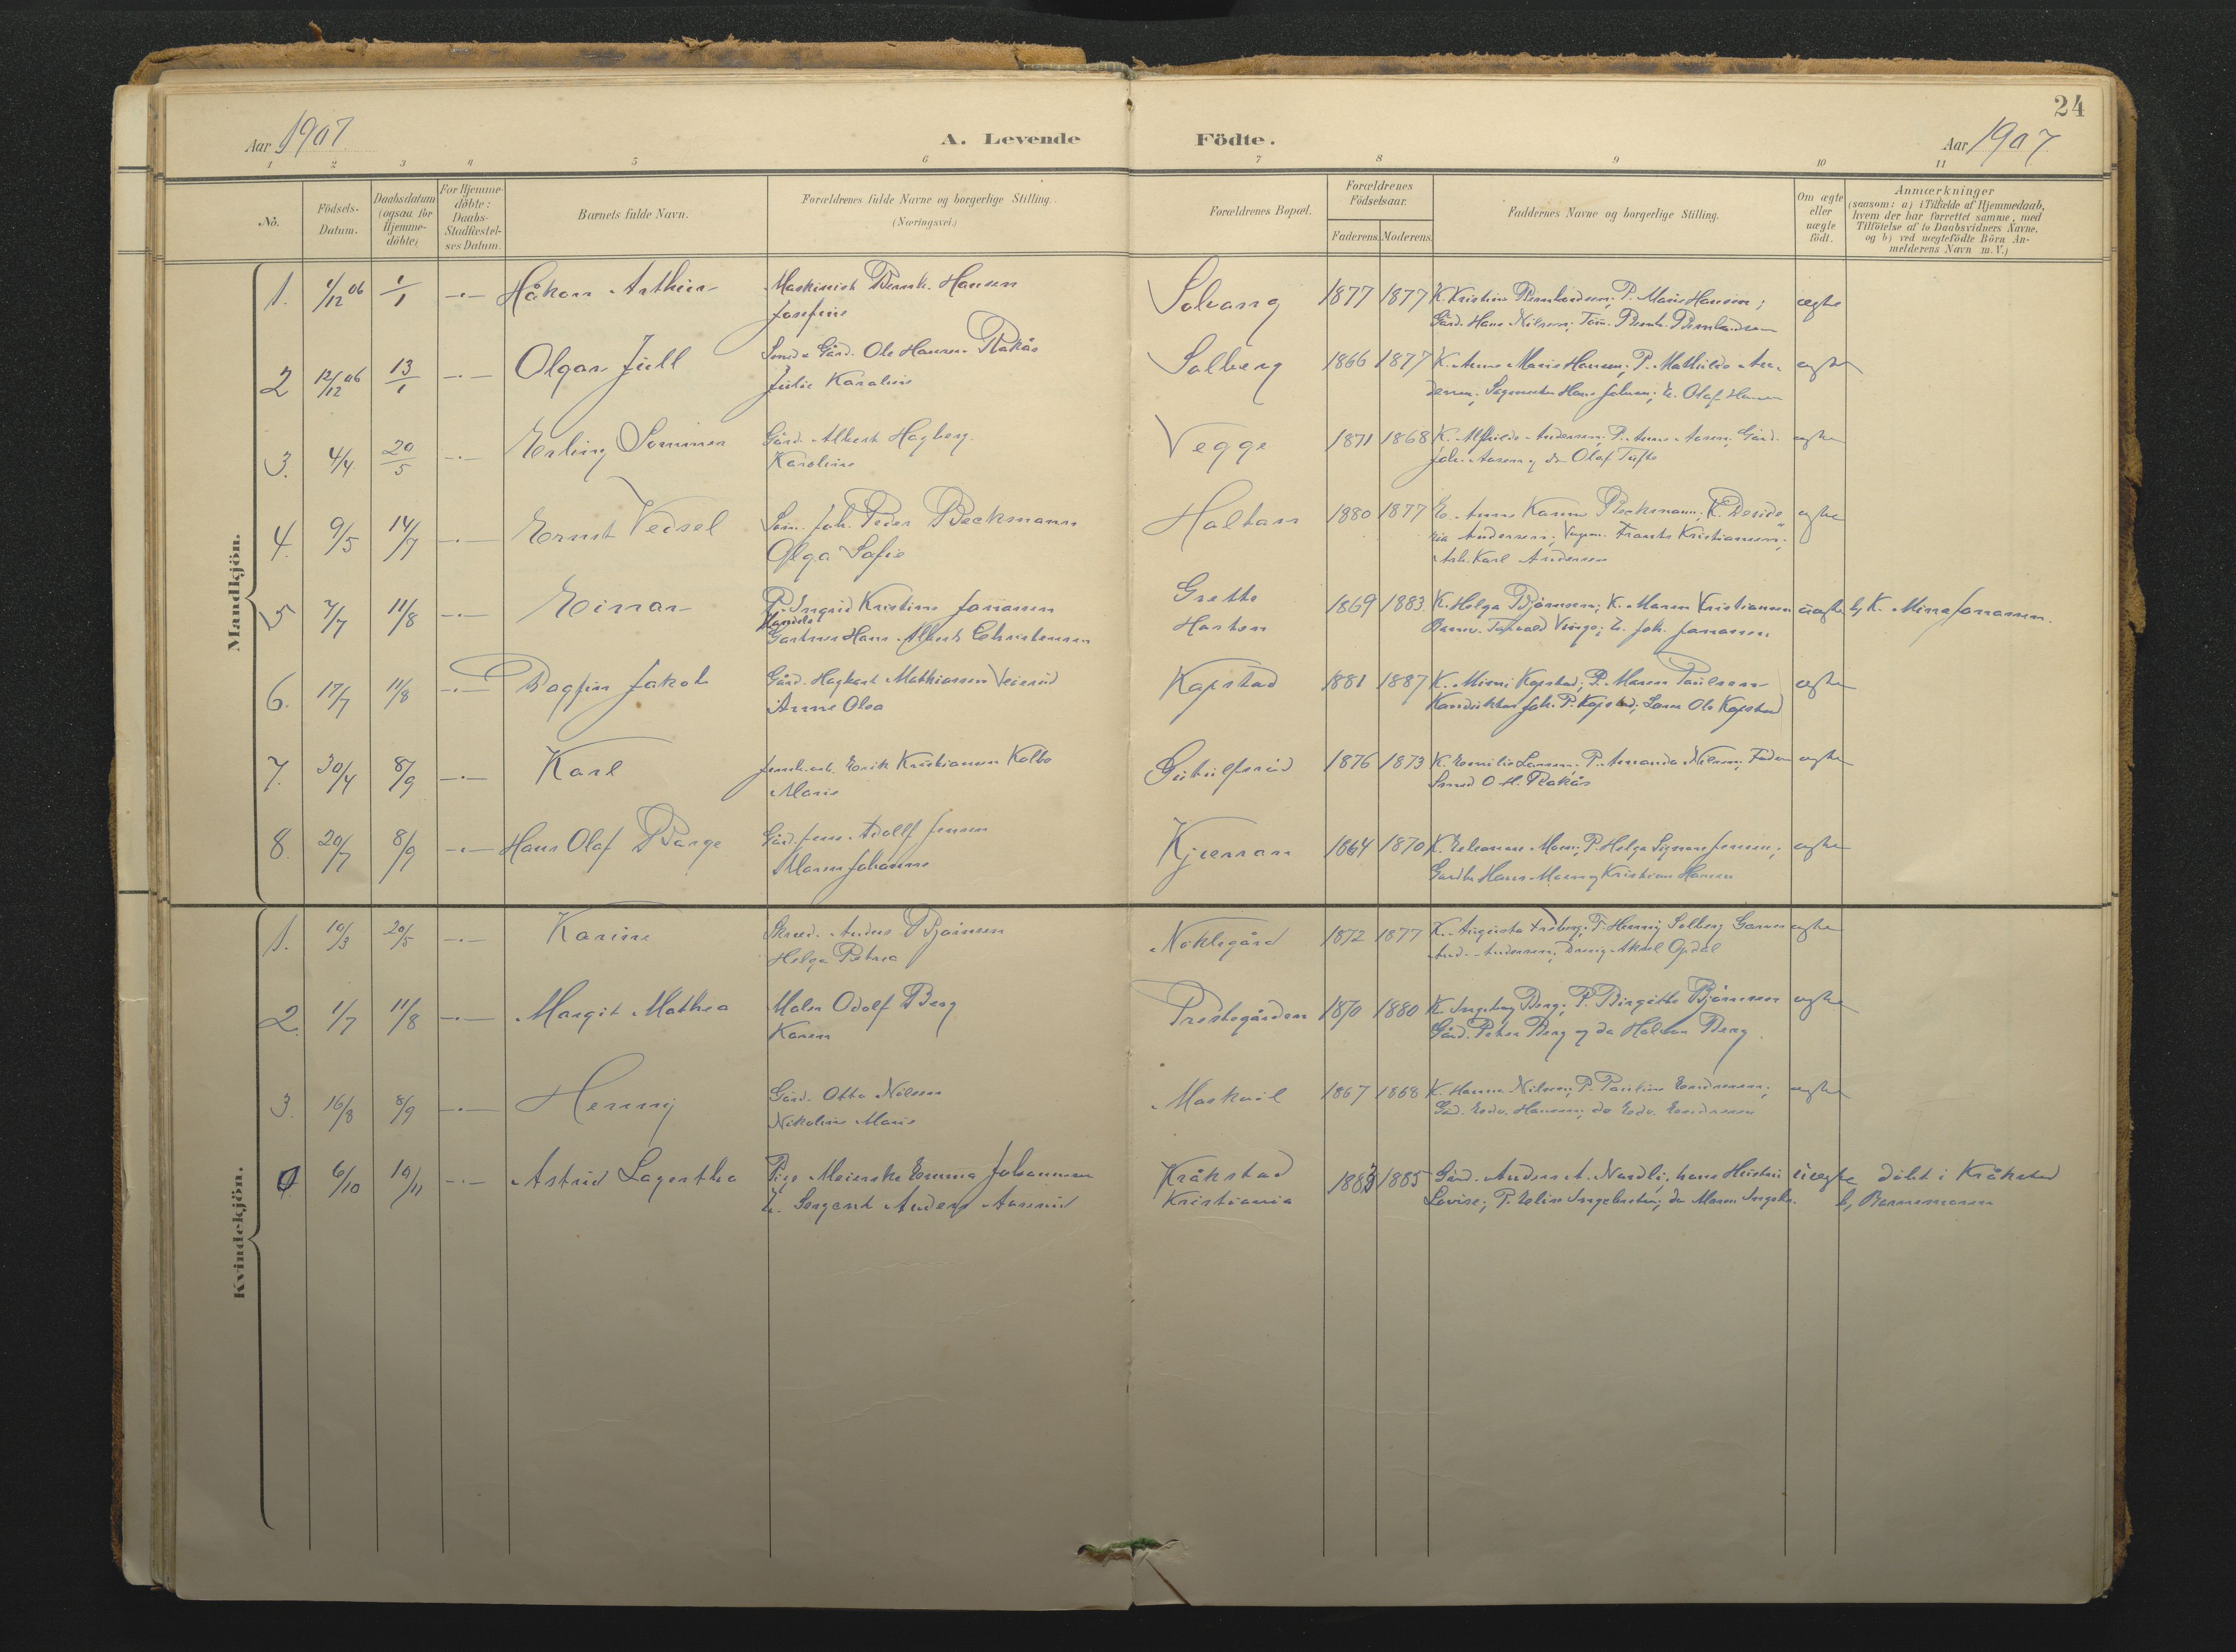 24
Aar 1907
A. Levende Födte.
Aar 1907
1 2 3 4 5 6 7 8 9 10 11
No.
Födsels-Datum.
Daabsdatum (ogsaa for Hjemme-döbte)
For Hjemme-döbte: Daabs-Stadfæstel-ses Datum.
Barnets fulde Navn.
Forældrenes fulde Navne og borgerlige Stilling. (Næringsvei.)
Forældrenes Bopæl.
Forældrenes Födselsaar.
Faderens. Moderens.
Faddernes Navne og borgerlige Stilling.
Om ægte eller uægte födt.
Anmærkninger
(saasom: a) i Tilfælde af Hjemmedaab,
hvem der har forrettet samme, med
Tilföielse af to Daabsvidners Navne,
og b) ved uægtefödte Börn An-
melderens Navn m. V.)
Mandkjön.
1. 1/12 06 1/1 -.- Håkon Arthur Maskinist Bernh. Hansen Solvang 1877 1877 K. Kristine Bernhardsen; P. Marie Hansen; ægte
Josefine Gård. Hans Nilsen; Tøm. Bernh. Bernhardsen
2 12/12 06 13/1 -.- Olgar Jull Smed & Gård. Ole Hansen Rakås Solberg 1866 1877 K. Anne Marie Hansen; P. Mathilde An- ægte
Julie Karoline dersen; Hans Johnsen; U. Olaf Hansen
3. 4/4 20/5 -.- Erling Sommer Gård. Albert Hagberg. Vegge 1871 1868 K. Alfhilde Andersen; P. Anne Aasen; Gård. ægte
Karoline Joh. Aasen og do Olaf Tufte
4. 9/5 14/7 -.- Ernst Vedsel Søm. Joh. Peder Beckmann Holtam 1880 1877 E. Anne Karine Beckmann; K. Deside- ægte
Olga Sofie ria Andersen; Frants Kristiansen;
Arb. Karl Andersen
5 7/7 11/8 -.- Einar P. Ingrid Kristine Jonassen Grette 1869 1883. K. Helga Bjørnsen; K. Maren Kristiansen uægte b, K. Mina Jonassen.
Handels
Gartner Hans Albert Christensen Horten Torvald Vinge; U. Joh. Jonassen
6. 17/7 11/8 -.- Dagfin Jakob Gård. Hagbart Mathiassen Veierud Kopstad 1881 1887 K. Mimi Kopstad; P. Maren Paulsen ægte
Anne Olea Konduktør Joh. P. Kopstad; Ole Kopstad
7. 30/4 8/9 -.- Karl Jernb.arb. Erik Kristiansen Kolbo Gutulfsrud 1876 1873 K. Emilie Larsen; P. Amanda Nilsen; Faderen ægte
Marie Smed O. H. Rakås
8. 20/7 8/9 -.- Hans Olaf Borge Gård. Jens Adolf Jensen Kjærran 1864 1870 K. Eleonore Moen; P. Helga Signora Jensen; ægte
Maren Johanne Gårdbr. Hans Moen og Kristian Hansen
Kvindekjön.
1. 10/3 20/5 -.- Karine Skræd. Anders Bjørnsen Nøklegård 1872 1877 K. Augusta Freberg; P. Henny Solberg Garver ægte
Helga Petrea And. Andersen; Dreng Aksel Opdal
2. 1/7 11/8 -.- Margit Mathea Maler Odolf Berg Prestegården 1870 1880 K. Ingeborg Berg; P. Birgitte Bjørnsen ægte
Karen Gård. Peter Berg og do Halvor Berg.
3. 16/8 8/9 -.- Henny Gård. Otto Nilsen Maskeil 1867 1868 K. Hanna Nilsen; P. Pauline Endresen; ægte
Nikoline Marie Gård. Edv. Hansen; do Edv. Endresen
4 6/10 10/11 -.- Astrid Lagertha Pige Meierske Emma Johannesen Kråkstad 1883 1885 Gård. Anders A. Nordli, hans Hustru uægte døbt i Kråkstad
U. Sergeant Anders Aaserud Kristiania Lovise; P. Elise Ingebretsen; do Maren Ingebr. b, Barnemoren